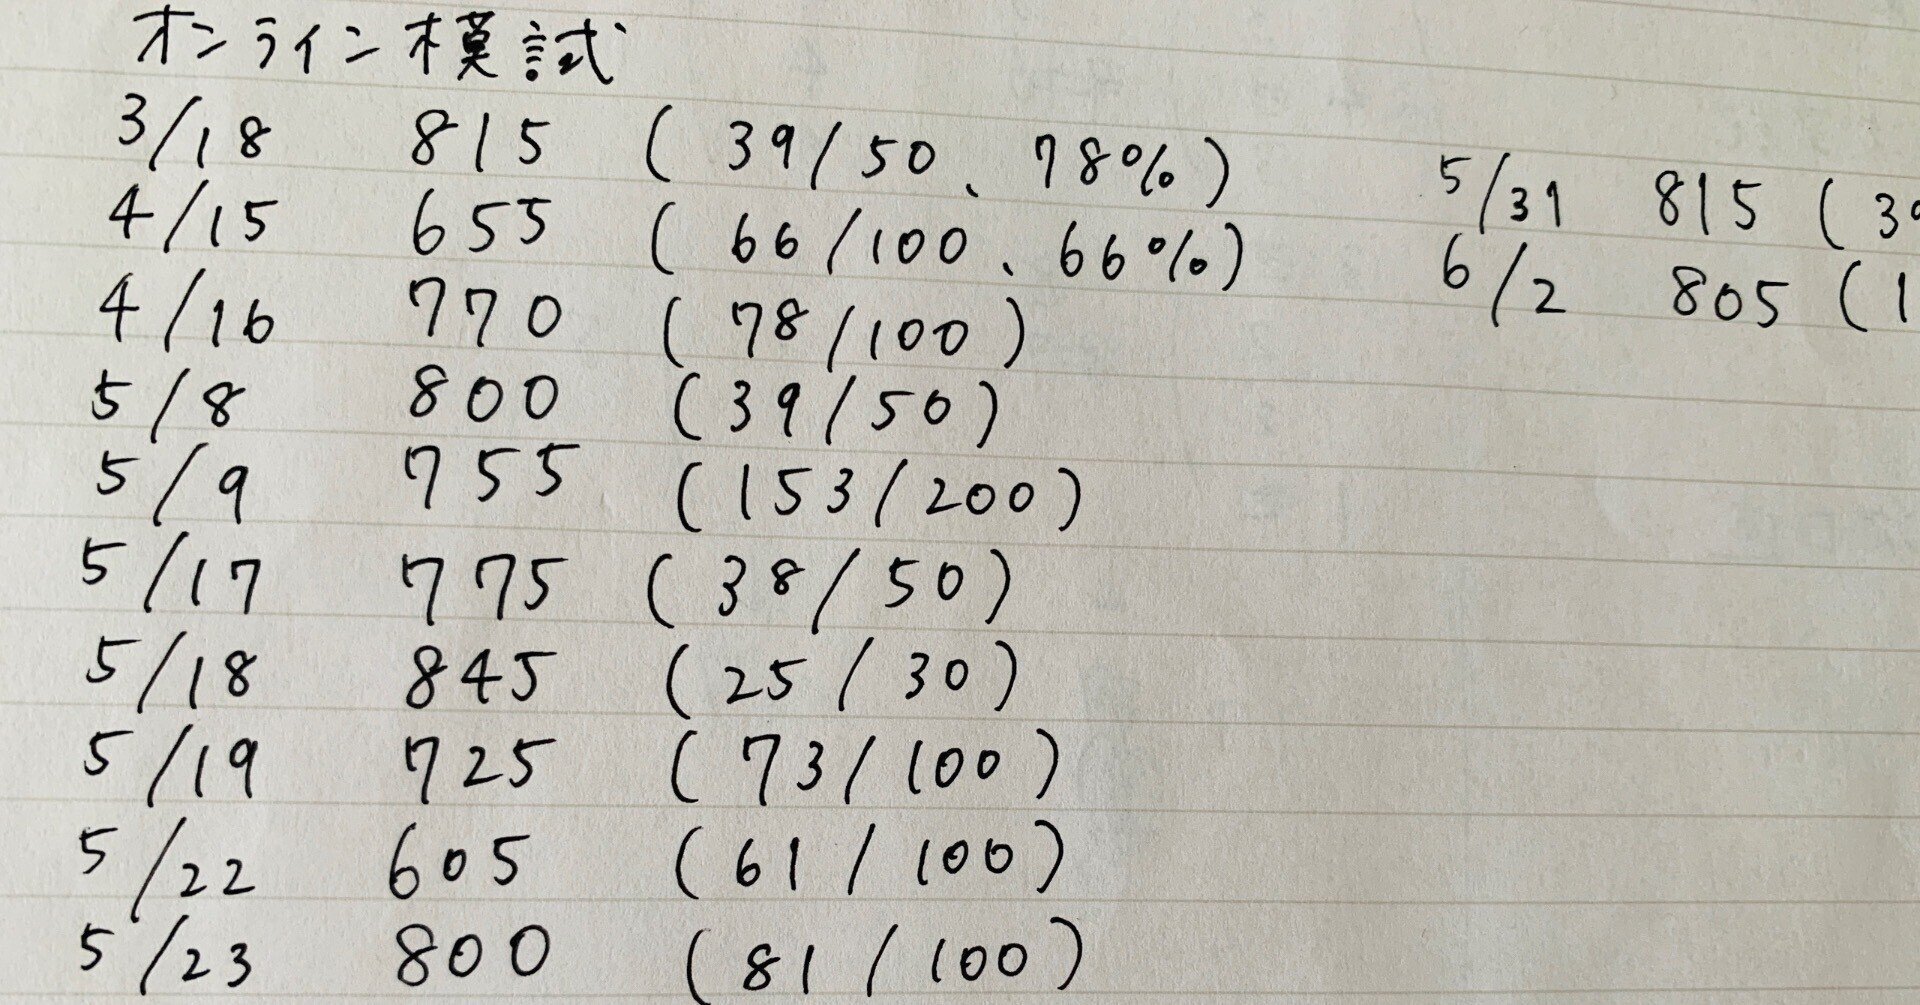 オンライン模試
3/18 815 (39/50、78%)
4/15 655 (66/100、66%)
4/16 770 (78/100)
5/8 800 (39/50)
5/9 755 (153/200)
5/17 775 (38/50)
5/18 845 (25/30)
5/19 725 (73/100)
5/22 605 (61/100)
5/23 800 (81/100)
5/31 815 (3
6/2 805 (1